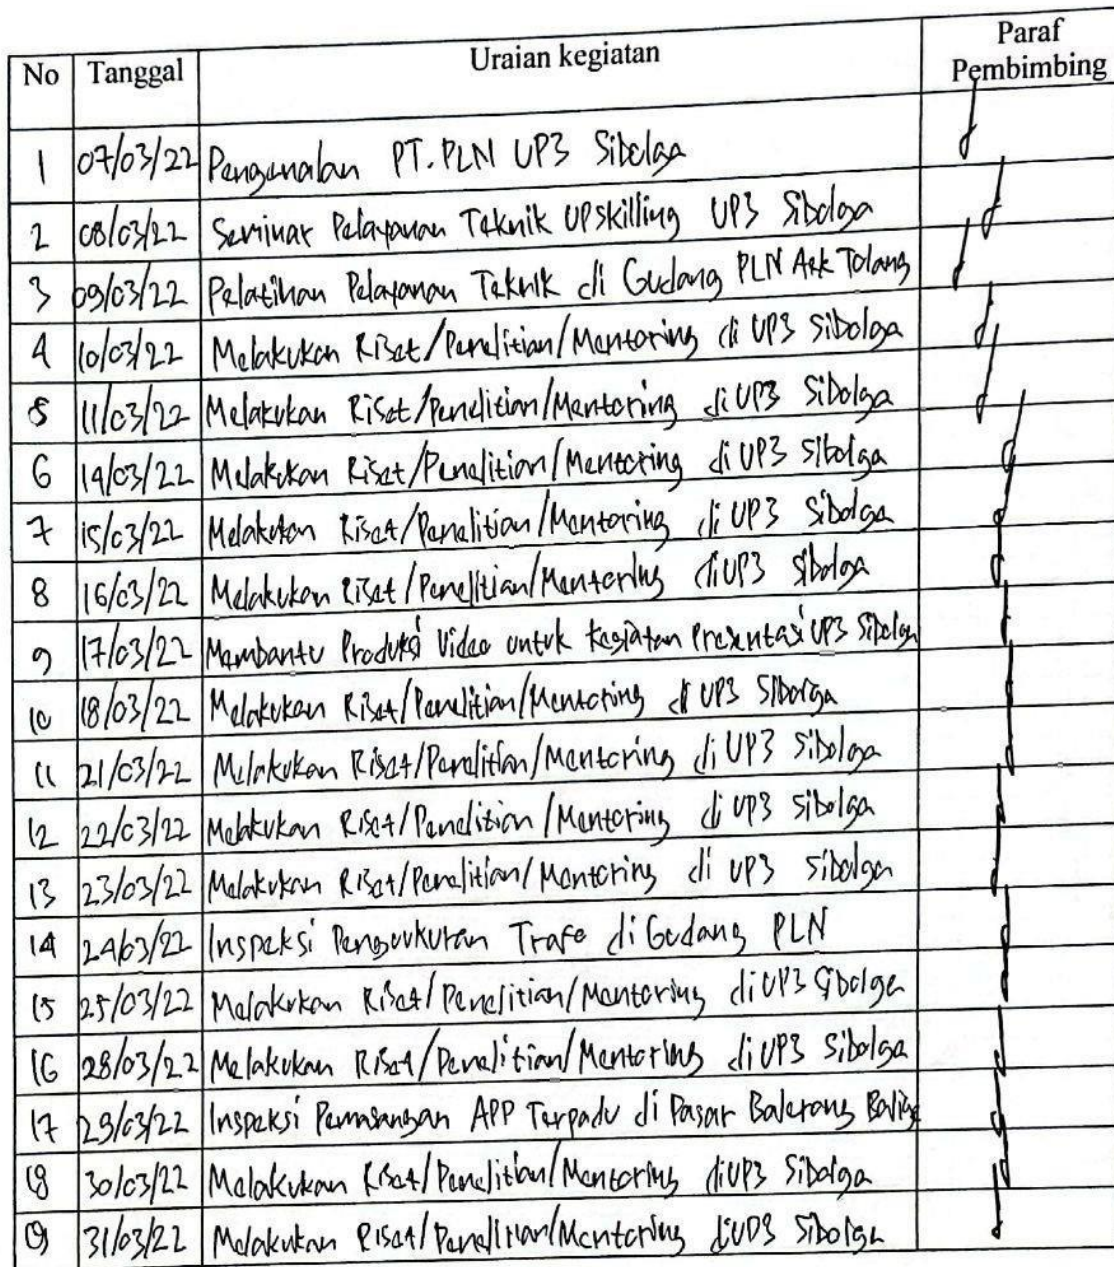 No Tanggal Uraian kegiatan Paraf
Pembimbing
1 07/03/22 Pengenalan PT. PLN UP3 Sibolga
2 08/03/22 Seminar Pelayanan Teknik UPskilling UP3 Sibolga
3 09/03/22 Pelatihan Pelayanan Teknik di Gudang PLN Aek Tolang
4 10/03/22 Melakukan Riset/Penelitian/Mentoring di UP3 Sibolga
5 11/03/22 Melakukan Riset/Penelitian/Mentoring di UP3 Sibolga
6 14/03/22 Melakukan Riset/Penelitian/Mentoring di UP3 Sibolga
7 15/03/22 Melakukan Riset/Penelitian/Mentoring di UP3 Sibolga
8 16/03/22 Melakukan Riset/Penelitian/Mentoring di UP3 Sibolga
9 17/03/22 Membantu Produksi Video untuk kegiatan Presentasi UP3 Sibolga
10 18/03/22 Melakukan Riset/Penelitian/Mentoring di UP3 Sibolga
11 21/03/22 Melakukan Riset/Penelitian/Mentoring di UP3 Sibolga
12 22/03/22 Melakukan Riset/Penelitian/Mentoring di UP3 Sibolga
13 23/03/22 Melakukan Riset/Penelitian/Mentoring di UP3 Sibolga
14 24/03/22 Inspeksi Pengukuran Trafo di Gudang PLN
15 25/03/22 Melakukan Riset/Penelitian/Mentoring di UP3 Sibolga
16 28/03/22 Melakukan Riset/Penelitian/Mentoring di UP3 Sibolga
17 29/03/22 Inspeksi Pemasangan APP Terpadu di Pasar Balerong Balige
18 30/03/22 Melakukan Riset/Penelitian/Mentoring di UP3 Sibolga
19 31/03/22 Melakukan Riset/Penelitian/Mentoring di UP3 Sibolga